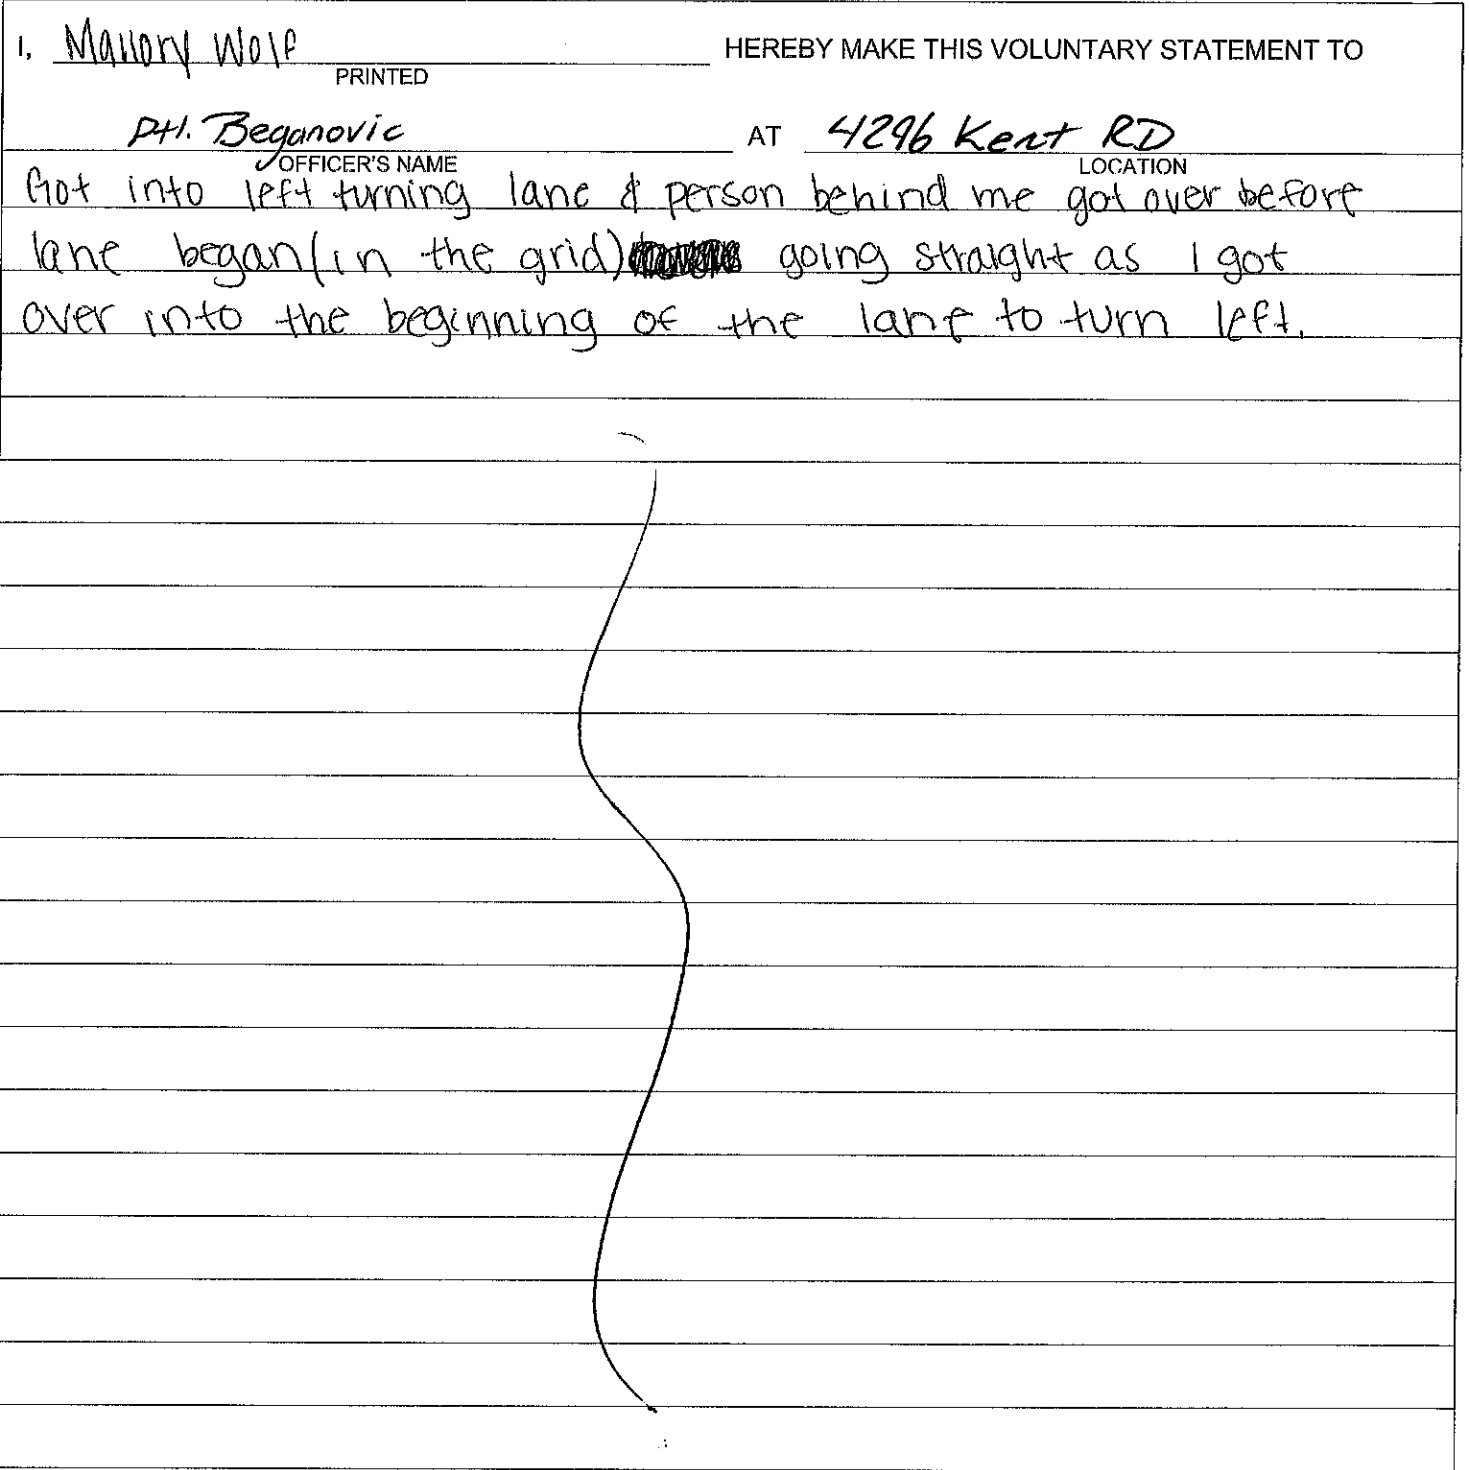 I, Mallory Wolf HEREBY MAKE THIS VOLUNTARY STATEMENT TO
PRINTED
Ptl. Beganovic AT 4296 Kent RD
OFFICER'S NAME LOCATION
Got into left turning lane & person behind me got over before
lane began (in the grid) going straight as I got
over into the beginning of the lane to turn left.